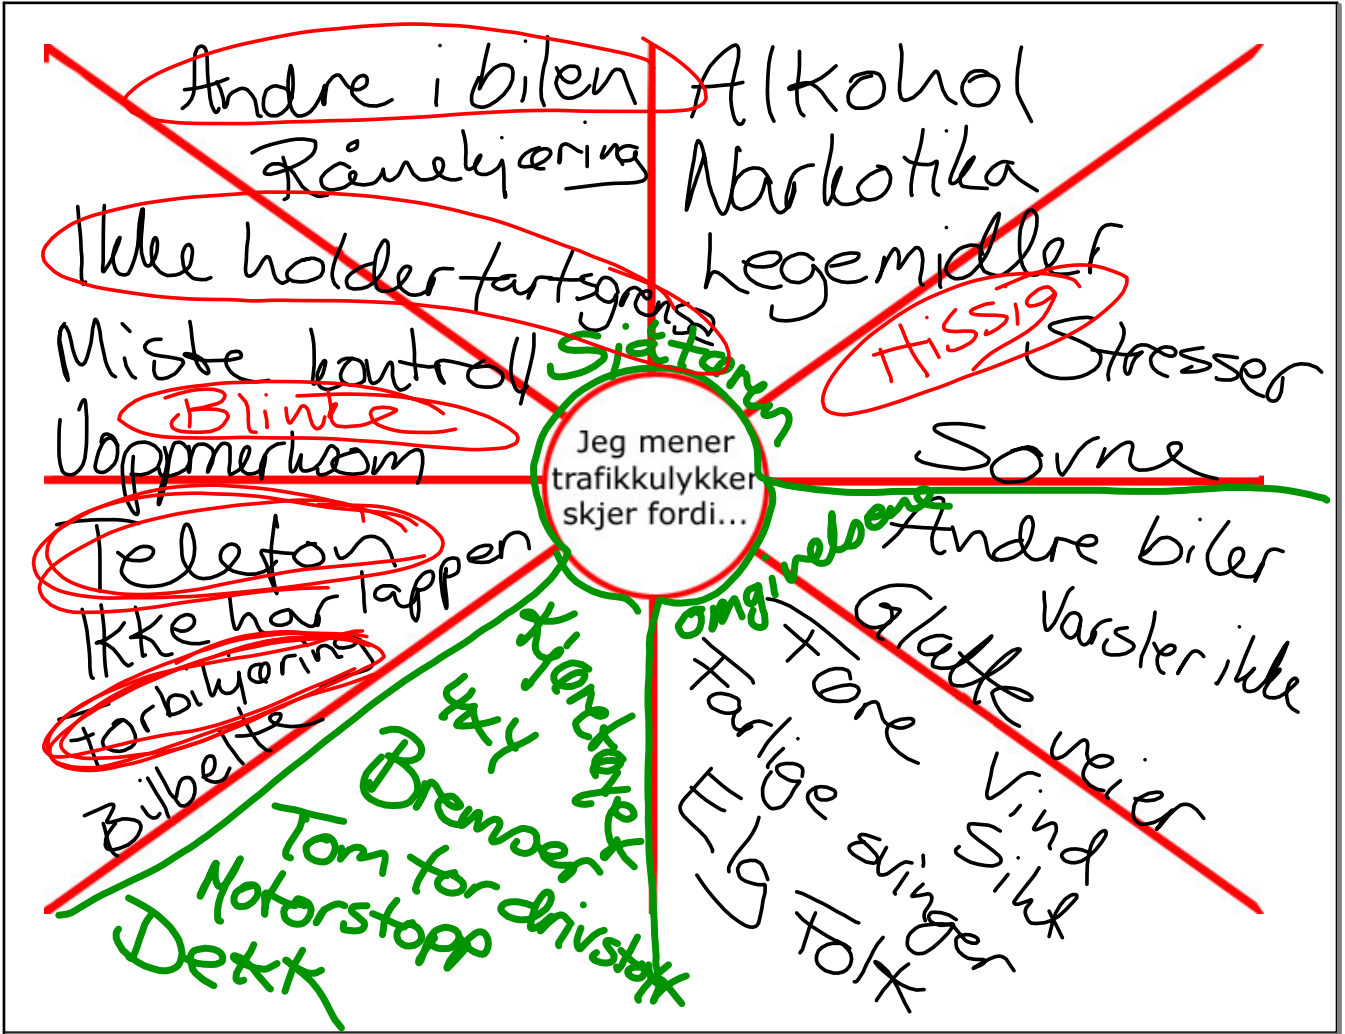 Andre i bilen
Rånekjøring
Ikke holder fartsgrense
Miste kontroll
Blinke
Uoppmerksom
Telefon
Ikke har lappen
Forbikjøring
Bilbelte
Alkohol
Narkotika
Legemidler
Hissig
Stresser
Sovne
Sjåføren
Jeg mener
trafikkulykker
skjer fordi...
omgivelsene
Andre biler
Varsler ikke
Glatte veier
Føre
Vind
Sikt
Farlige svinger
Elg
Folk
Kjøretøyet
4x4
Bremser
Tom for drivstoff
Motorstopp
Dekk